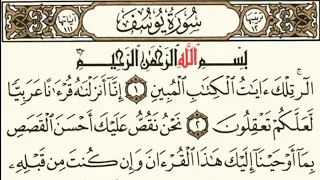 ترتيبها ١٢
سُورَةُ يُوسُفَ
آياتها ١١١
بِسْمِ اللَّهِ الرَّحْمَٰنِ الرَّحِيمِ
الٓرۚ تِلْكَ ءَايَٰتُ ٱلْكِتَٰبِ ٱلْمُبِينِ ١ إِنَّآ أَنزَلْنَٰهُ قُرْءَٰنًا عَرَبِيًّا
لَّعَلَّكُمْ تَعْقِلُونَ ٢ نَحْنُ نَقُصُّ عَلَيْكَ أَحْسَنَ ٱلْقَصَصِ
بِمَآ أَوْحَيْنَآ إِلَيْكَ هَٰذَا ٱلْقُرْءَانَ وَإِن كُنتَ مِن قَبْلِهِۦ